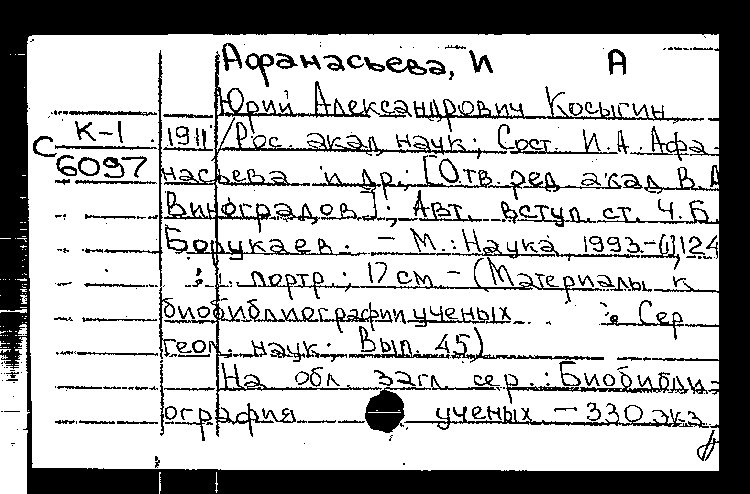 Афанасьева, И А
Юрий Александрович Косыгин,
С К-1 1911/Рос. акад. наук; Сост. И.А. Афа-
6097 насьева и др.; [Отв. ред. акад. В.А
Виноградов]; Авт. вступ. ст. Ч.Б.
Борукаев. - М.: Наука, 1993-(1),124
: 1. портр.; 17 см - (Материалы к
биобиблиографии ученых : Сер
геол. наук; Вып. 45)
На обл. загл. сер.: Биобибли-
ография ученых. - 330 экз